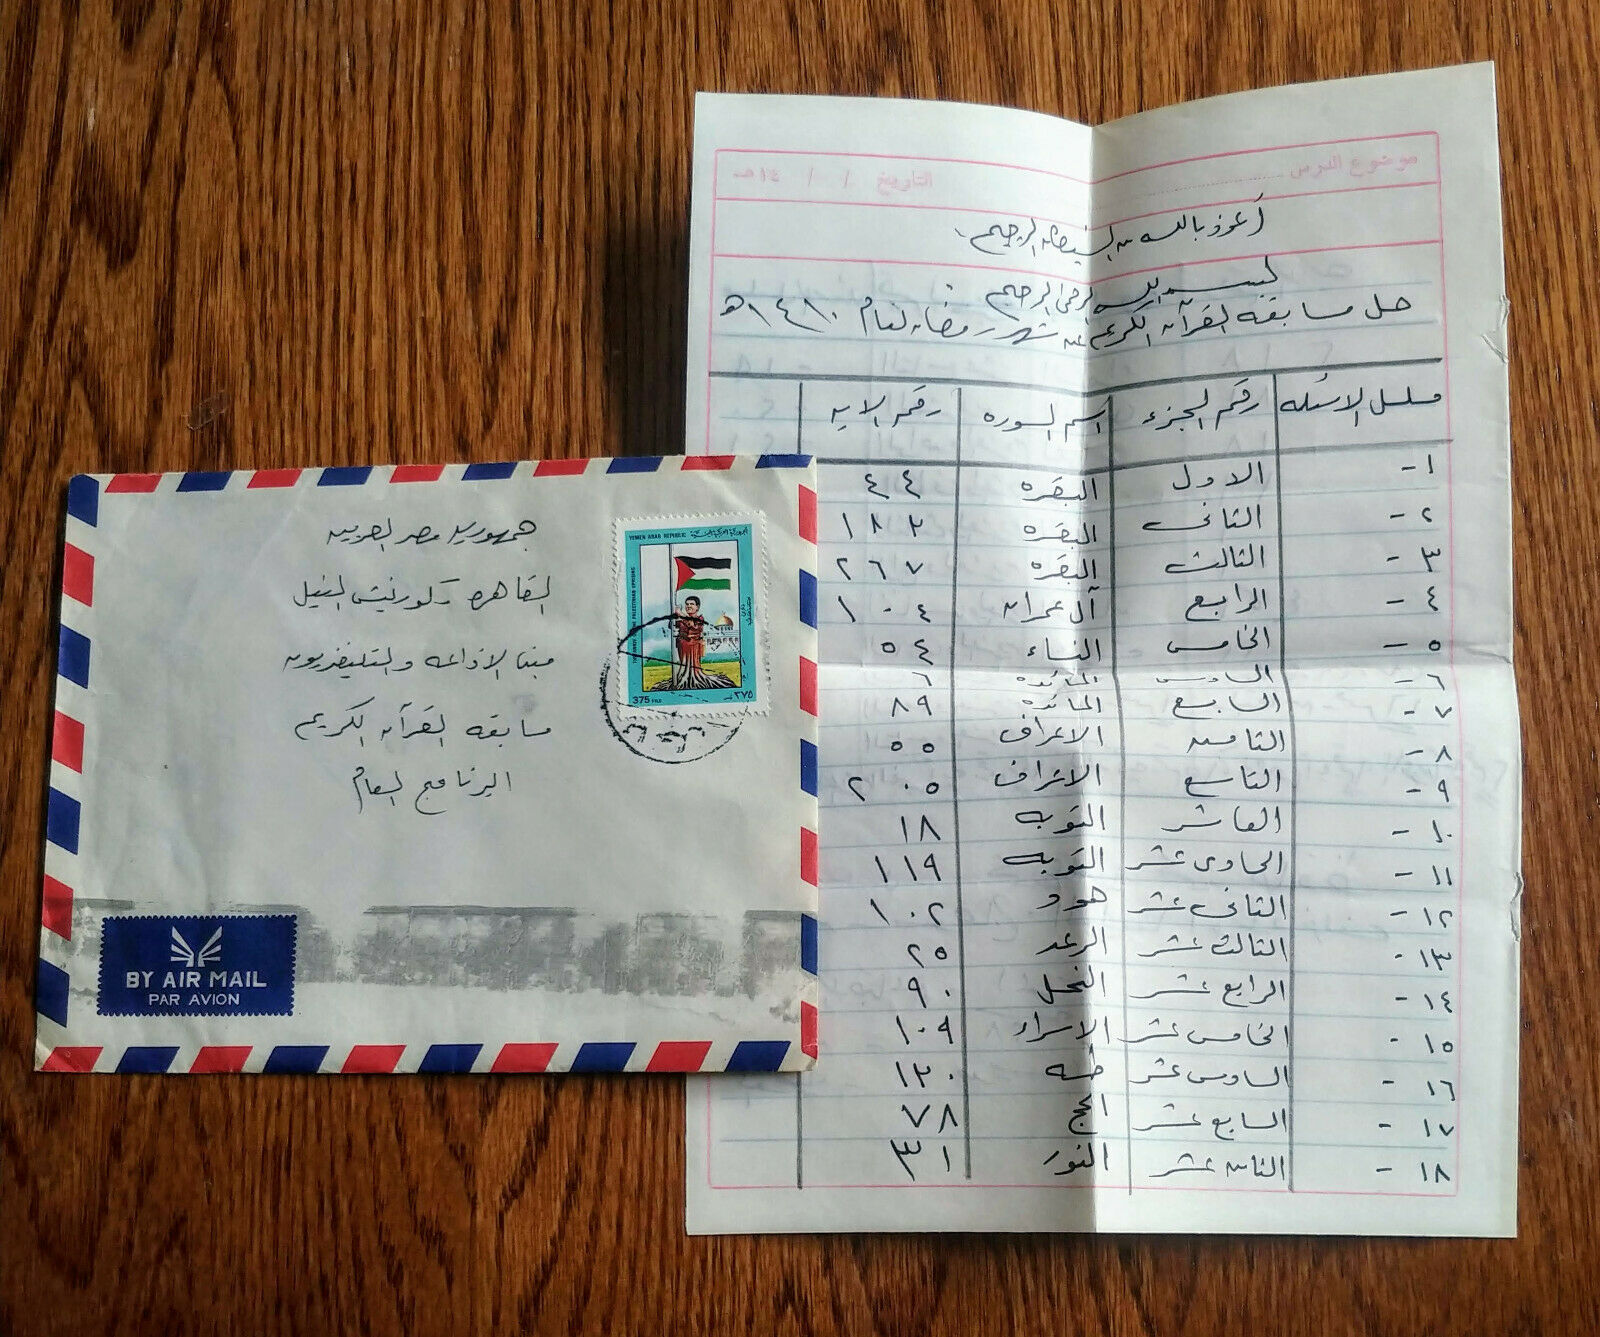 جمهوريه مصر العربيه
القاهره كورنيش النيل
مبنا الاذاعه والتليفزيون
مسابقه القرآن الكريم
البرنامج العام
YEMEN ARAB REPUBLIC الجمهورية العربية اليمنية
375 FILS ٣٧٥
BY AIR MAIL
PAR AVION
موضوع الدرس التاريخ / / ١٤هـ
أعوذ بالله من الشيطان الرجيم
بسم الله الرحمن الرحيم
حل مسابقه القرآن الكريم عن شهر رمضان لعام ١٤١٠هـ
مسلسل الاسئله رقم الجزء اسم السوره رقم الايه
١- الاول البقره ٤٤
٢- الثاني البقره ١٨٣
٣- الثالث البقره ٢٦٧
٤- الرابع آل عمران ١٠٤
٥- الخامس النساء ٥٤
٦- السادس المائده ٦
٧- السابع المائده ٨٩
٨- الثامن الاعراف ٥٥
٩- التاسع الاعراف ٢٠٥
١٠- العاشر التوبه ١٨
١١- الحادي عشر التوبه ١١٩
١٢- الثاني عشر هود ١٠٢
١٣- الثالث عشر الرعد ٢٥
١٤- الرابع عشر النحل ٩٠
١٥- الخامس عشر الاسراء ١٠٩
١٦- السادس عشر طه ١٣٠
١٧- السابع عشر الحج ٧٨
١٨- الثامن عشر النور ٣١